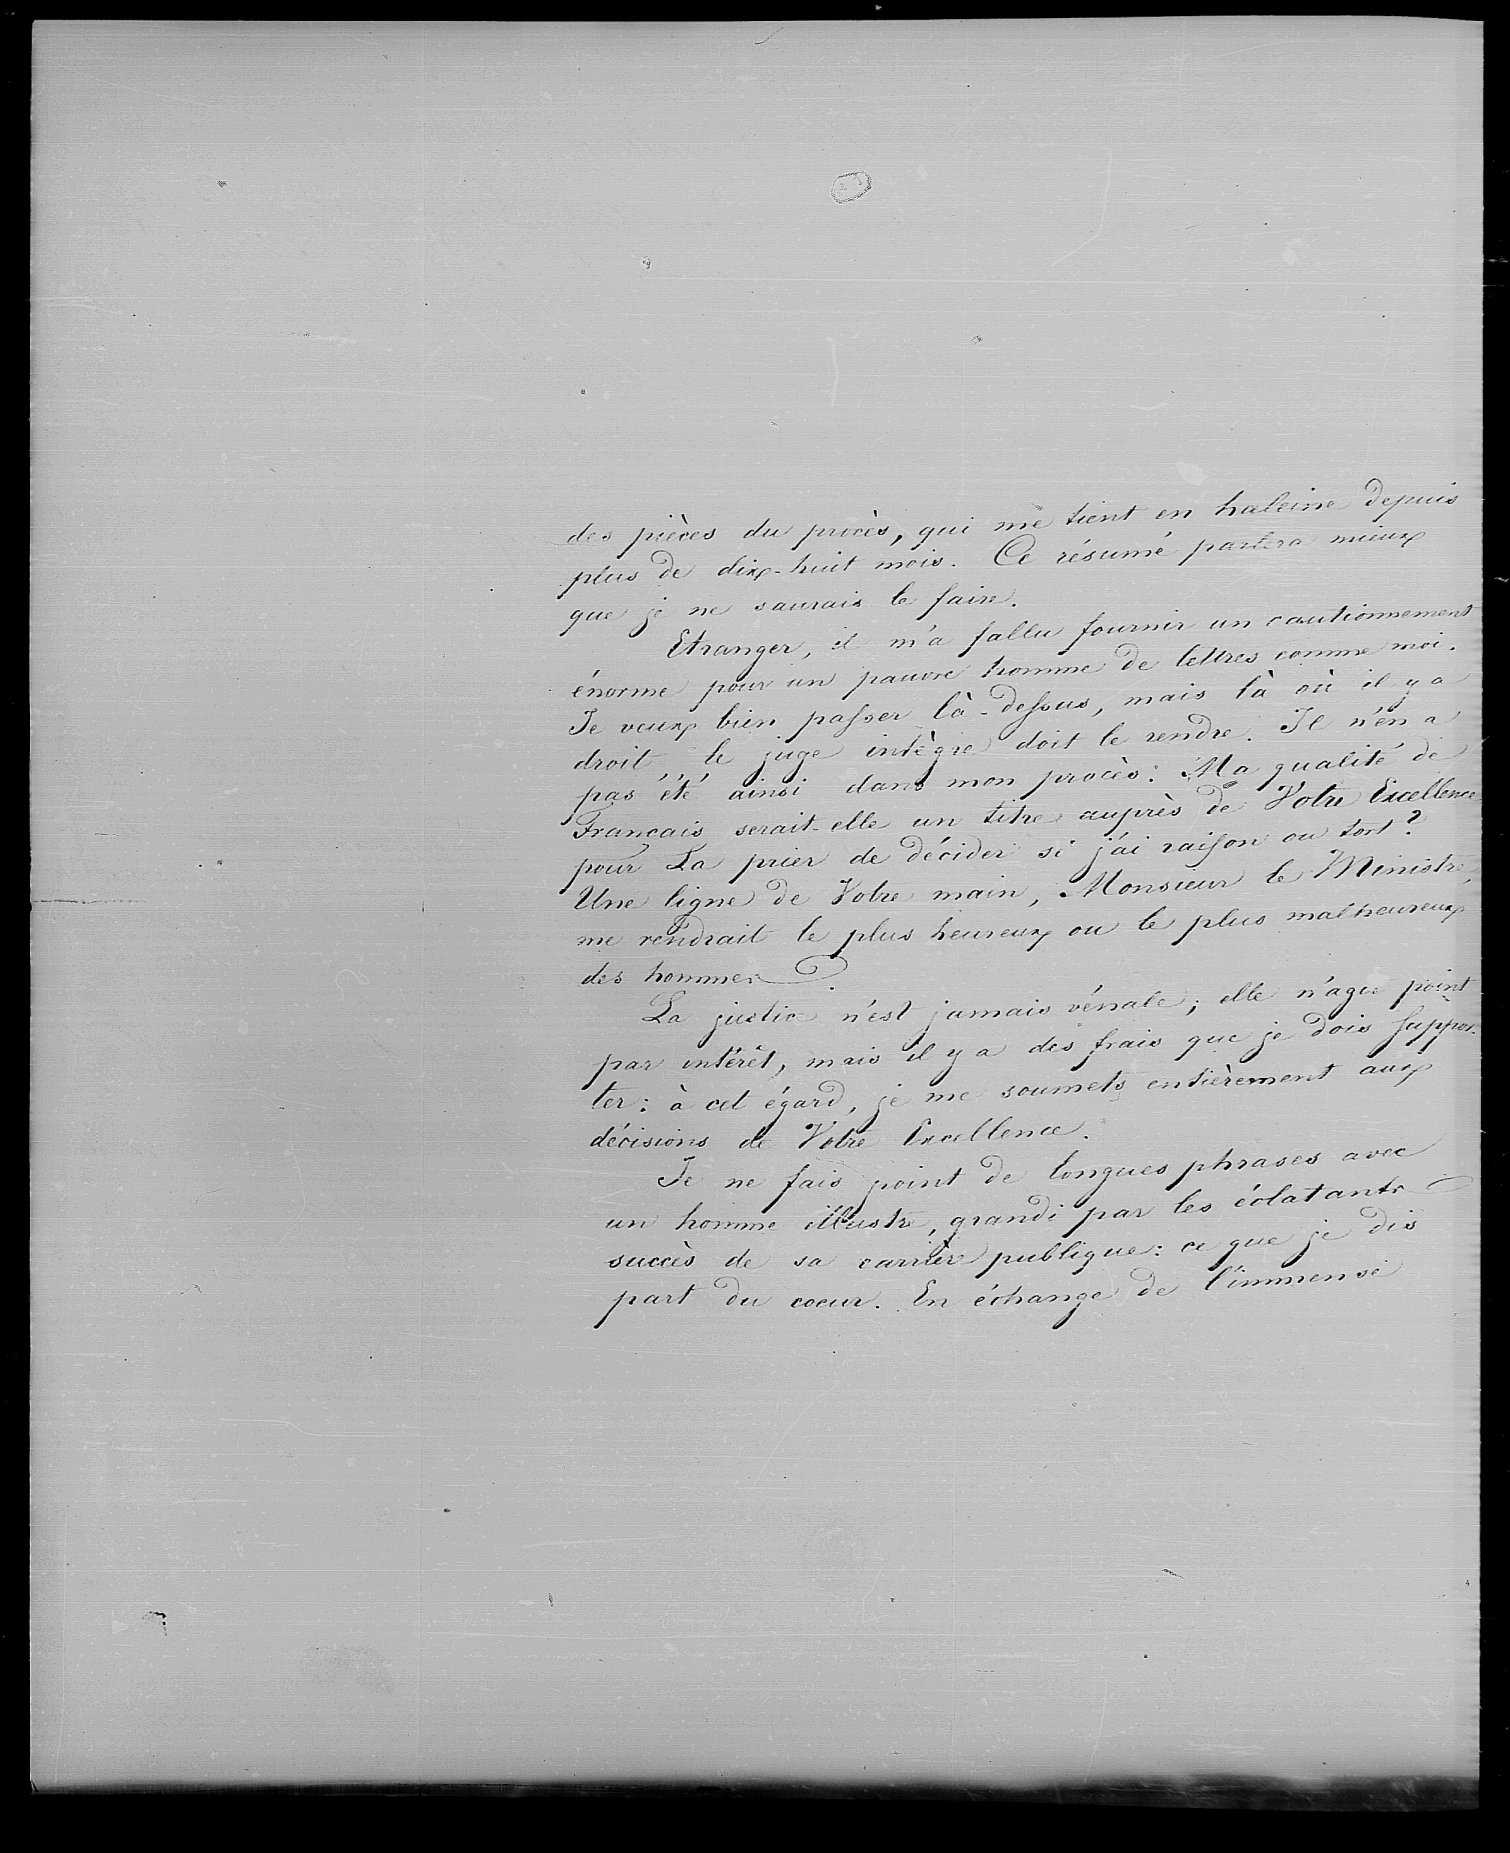 des pièces du procès, qui me tient en haleine depuis
plus de dix-huit mois. Ce résumé parlera mieux
que je ne saurais le faire.
Etranger, il m'a fallu fournir un cautionnement
énorme pour un pauvre homme de lettres comme moi.
Je veux bien passer là-dessus, mais là où il y a
droit le juge intègre doit le rendre. Il n'en a
pas été ainsi dans mon procès: Ma qualité de
Français serait-elle un titre auprès de Votre Excellence
pour La prier de décider si j'ai raison ou tort?
Une ligne de Votre main, Monsieur le Ministre,
me rendrait le plus heureux ou le plus malheureux
des hommes.
La justice n'est jamais vénale; elle n'agit point
par intérêt, mais il y a des frais que je dois suppor-
ter: à cet égard, je me soumets entièrement aux
décisions de Votre Excellence.
Je ne fais point de longues phrases avec
un homme illustre, grandi par les éclatants
succès de sa carrière publique: ce que je dis
part du coeur. En échange de l'immense